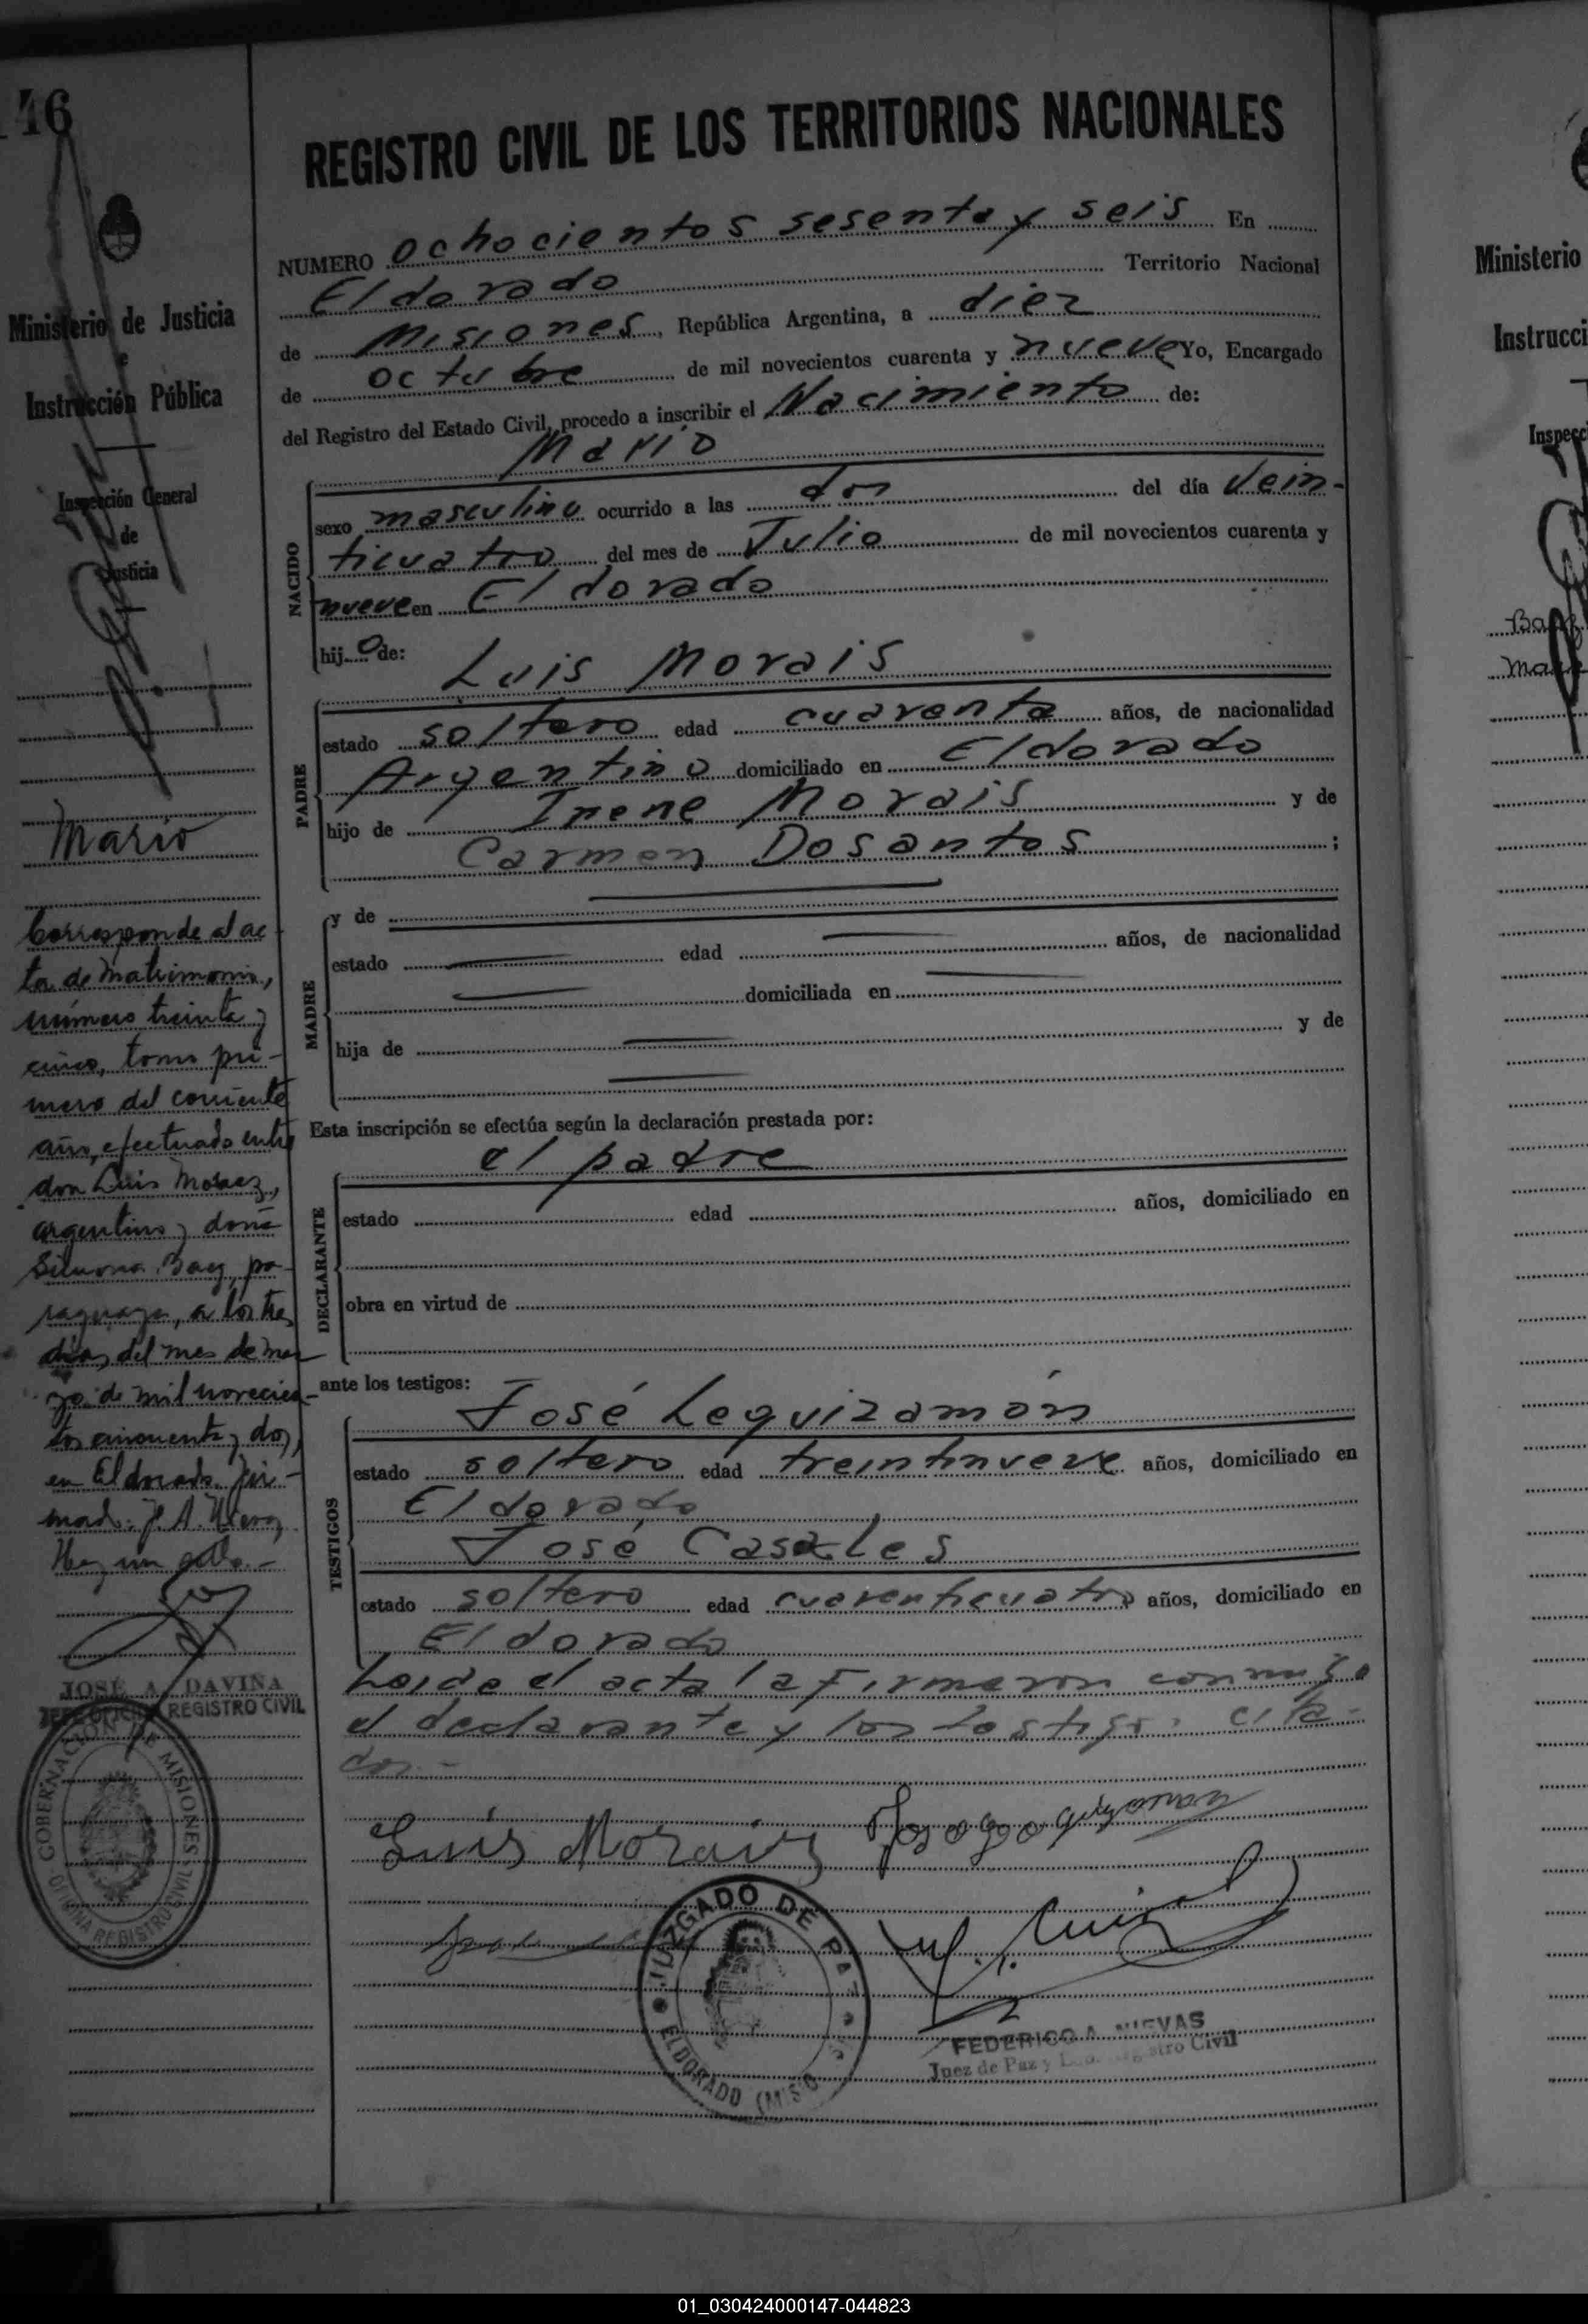 146
Ministerio de Justicia
e
Instrucción Pública
Inspección General
de
Justicia
Mario
Corresponde al ac-
ta de matrimonio,
número treinta y
cinco, tomo pri-
mero del corriente
año, efectuado entre
don Luis Moraez,
argentino y doña
Simona Baez, pa-
raguaya, a los tres
días del mes de mar-
zo de mil novecien-
tos cincuenta y dos,
en Eldorado. Fir-
mado: F. A. Nievas
Hay un sello.-
JOSÉ A. DAVIÑA
JEFE OFICINA REGISTRO CIVIL
GOBERNACION DE MISIONES
OFICINA REGISTRO CIVIL
REGISTRO CIVIL DE LOS TERRITORIOS NACIONALES
NUMERO ochocientos sesenta y seis En
Eldorado Territorio Nacional
de Misiones, República Argentina, a diez
de octubre de mil novecientos cuarenta y nueve Yo, Encargado
del Registro del Estado Civil, procedo a inscribir el Nacimiento de:
Mario
NACIDO
sexo masculino ocurrido a las dos del día vein-
ticuatro del mes de Julio de mil novecientos cuarenta y
nueve en Eldorado
hijo de:
Luis Morais
PADRE
estado soltero edad cuarenta años, de nacionalidad
Argentino domiciliado en Eldorado
hijo de Irene Morais y de
Carmen Dosantos ;
MADRE
y de
estado edad años, de nacionalidad
domiciliada en
hija de y de
Esta inscripción se efectúa según la declaración prestada por:
el padre
DECLARANTE
estado edad años, domiciliado en
obra en virtud de
ante los testigos:
José Leguizamón
TESTIGOS
estado soltero edad treintinueve años, domiciliado en
Eldorado
José Casales
estado soltero edad cuarenticuatro años, domiciliado en
Eldorado
Leida el acta la firmaron conmigo
el declarante y los testigos cita-
dos.-
Luis Morais
JUZGADO DE PAZ
ELDORADO
FEDERICO A. NIEVAS
Juez de Paz y Registro Civil
Ministerio
Instrucci
Inspecc
01_030424000147-044823